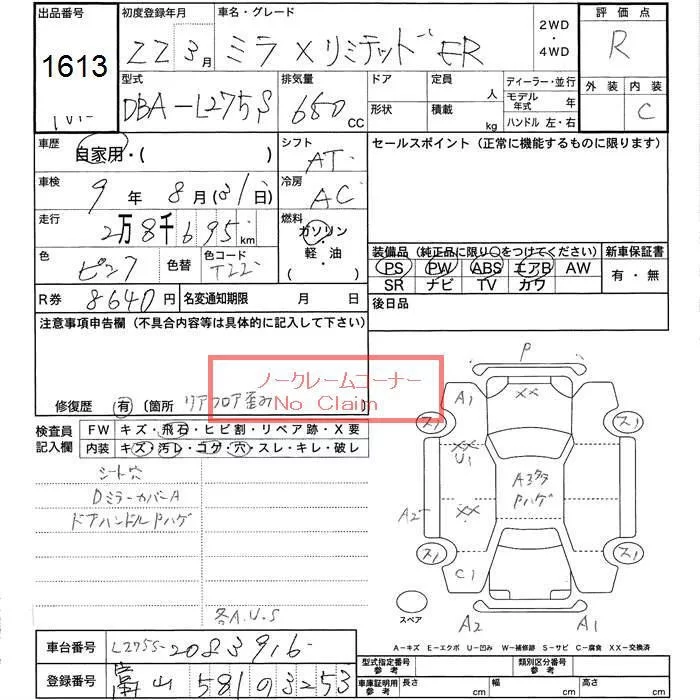 出品番号 初度登録年月 車名・グレード 2WD・4WD 評価点
1613 22 3月 ミラ Xリミテッド ER R
型式 排気量 ドア 定員 人 ディーラー・並行 外装 内装
DBA-L275S 660 CC 形状 積載 kg モデル年式 年 C
ハンドル 左・右
車歴 自家用・( ) シフト AT セールスポイント(正常に機能するものに限ります)
車検 9年 8月(31日) 冷房 AC
走行 2万8千695km 燃料 ガソリン・軽・油
装備品(純正品に限り○をつけてください) 新車保証書
色 ピンク 色替 色コード T22 PS PW ABS エアB AW 有・無
SR ナビ TV カワ
R券 8640円 名変通知期限 月 日 後日品
注意事項申告欄(不具合内容等は具体的に記入して下さい)
ノークレームコーナー
No Claim
修復歴 有(箇所 リアフロア歪み)
検査員記入欄 FW キズ・飛石・ヒビ割・リペア跡・X要
内装 キズ・汚レ・コゲ・穴・スレ・キレ・破レ
シート穴
DミラーカバーA
ドアハンドルPハゲ
各A.U.S
P
A1 XX
ス1 ス1
XX
U1
A3タタ
Pハゲ
A2 XX
ス1 ス1
C1
スペア
A2 A1
A-キズ E-エクボ U-凹み W-補修跡 S-サビ C-腐食 XX-交換済
車台番号 L275S-2083916
型式指定番号 参考 類別区分番号 参考
登録番号 富山 581 の 3253
車庫証明用 参考 長さ cm 幅 cm 高さ cm